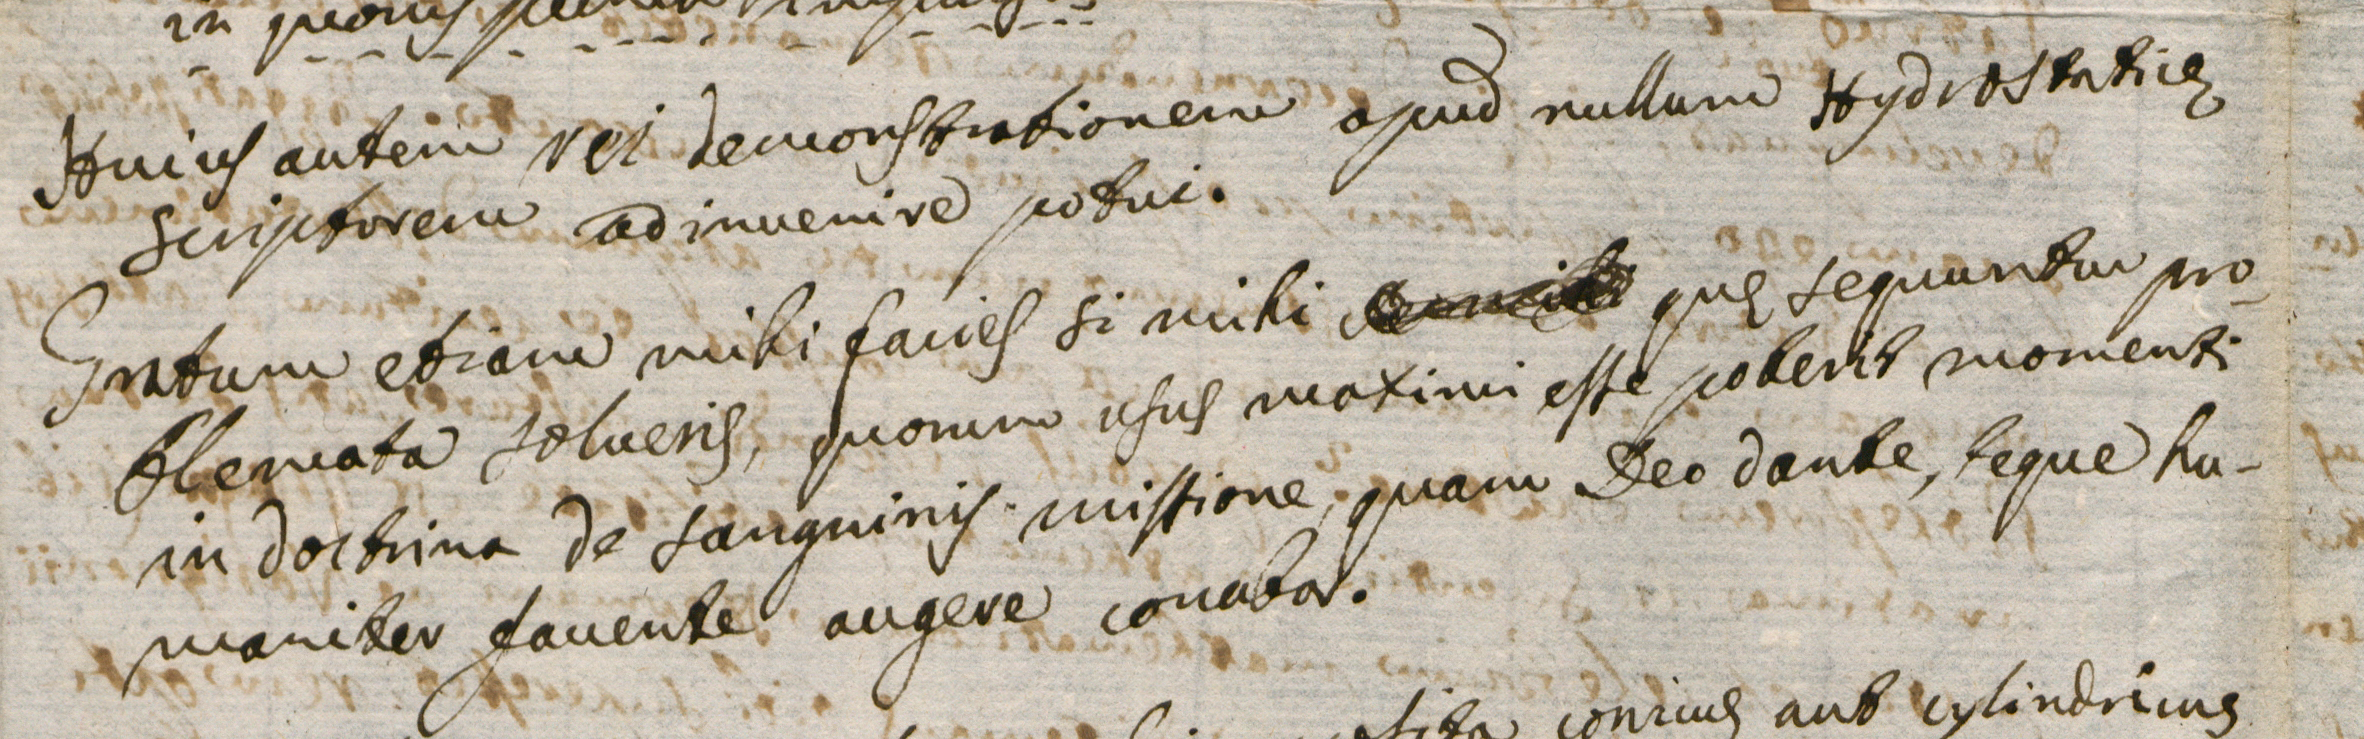 in
Huius autem rei demonstrationem apud nullum Hydrostaticę
scriptorem adinuenire potui.
Gratum etiam mihi facies si mihi quę sequuntur pro-
blemata solueris, quorum usus maximi esse poterit momenti
in doctrina de sanguinis missione, quam Deo dante, teque hu-
maniter fauente augere conabor.
conicus aut cylindricus